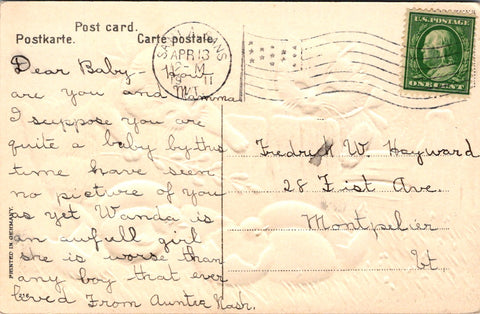 Post card.
Postkarte. Carte postale.
APR 13
U.S. POSTAGE
ONE CENT
Dear Baby -
are you and Mamma
I suppose you are
quite a baby by this
time have seen
no picture of you
as yet Wanda is
an awfull girl
she is worse than
any boy that ever
lived From Auntie Nash.
Fredrick W. Hayward
28 First Ave.
Montpelier
Vt
PRINTED IN GERMANY.